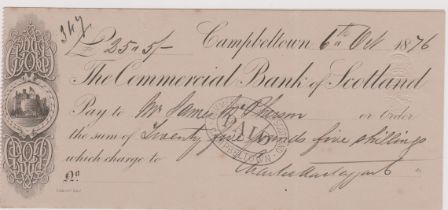 347
£ 25 " 5/- Campbeltown 6th Oct 1876
The Commercial Bank of Scotland
Pay to Mr James or Order
the sum of Twenty five pounds five shillings
which charge to
No
PAID